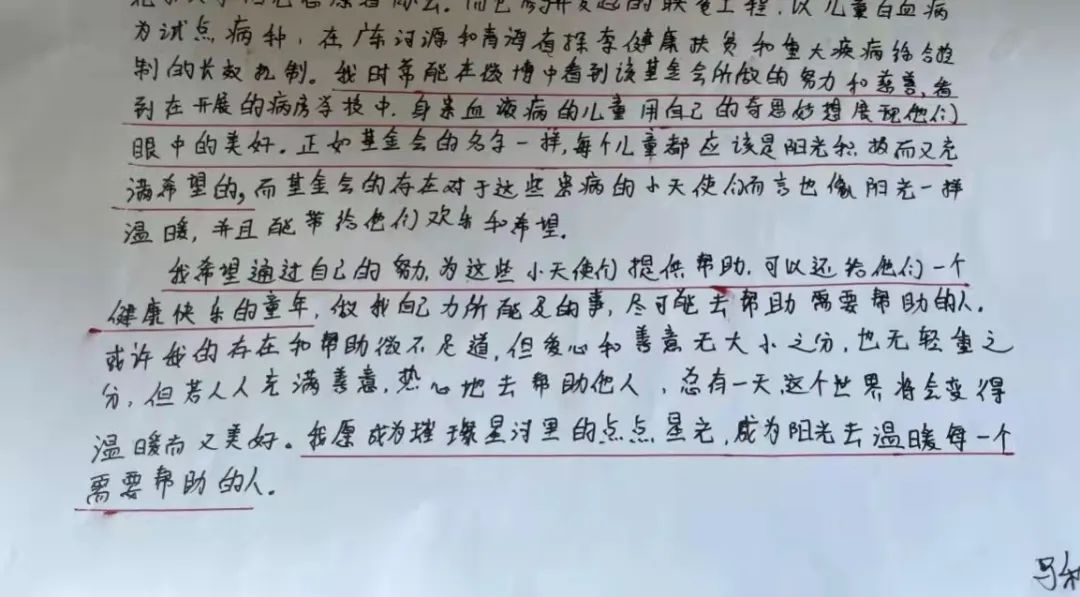 而它的开发起的联爱工程，以儿童白血病
为试点病种，在广东河源和青海省探索健康扶贫和重大疾病综合控
制的长效机制。我时常能在微博中看到该基金会所做的努力和慈善，看
到在开展的病房学校中，身患血液病的儿童用自己的奇思妙想展现他们
眼中的美好。正如基金会的名字一样，每个儿童都应该是阳光积极而又充
满希望的，而基金会的存在对于这些患病的小天使们而言也像阳光一样
温暖，并且能带给他们欢乐和希望。
我希望通过自己的努力，为这些小天使们提供帮助，可以还给他们一个
健康快乐的童年，做我自己力所能及的事，尽可能去帮助需要帮助的人。
或许我的存在和帮助微不足道，但爱心和善意无大小之分，也无轻重之
分，但若人人充满善意，热心地去帮助他人，总有一天这个世界将会变得
温暖而又美好。我愿成为璀璨星河里的点点星光，成为阳光去温暖每一个
需要帮助的人。